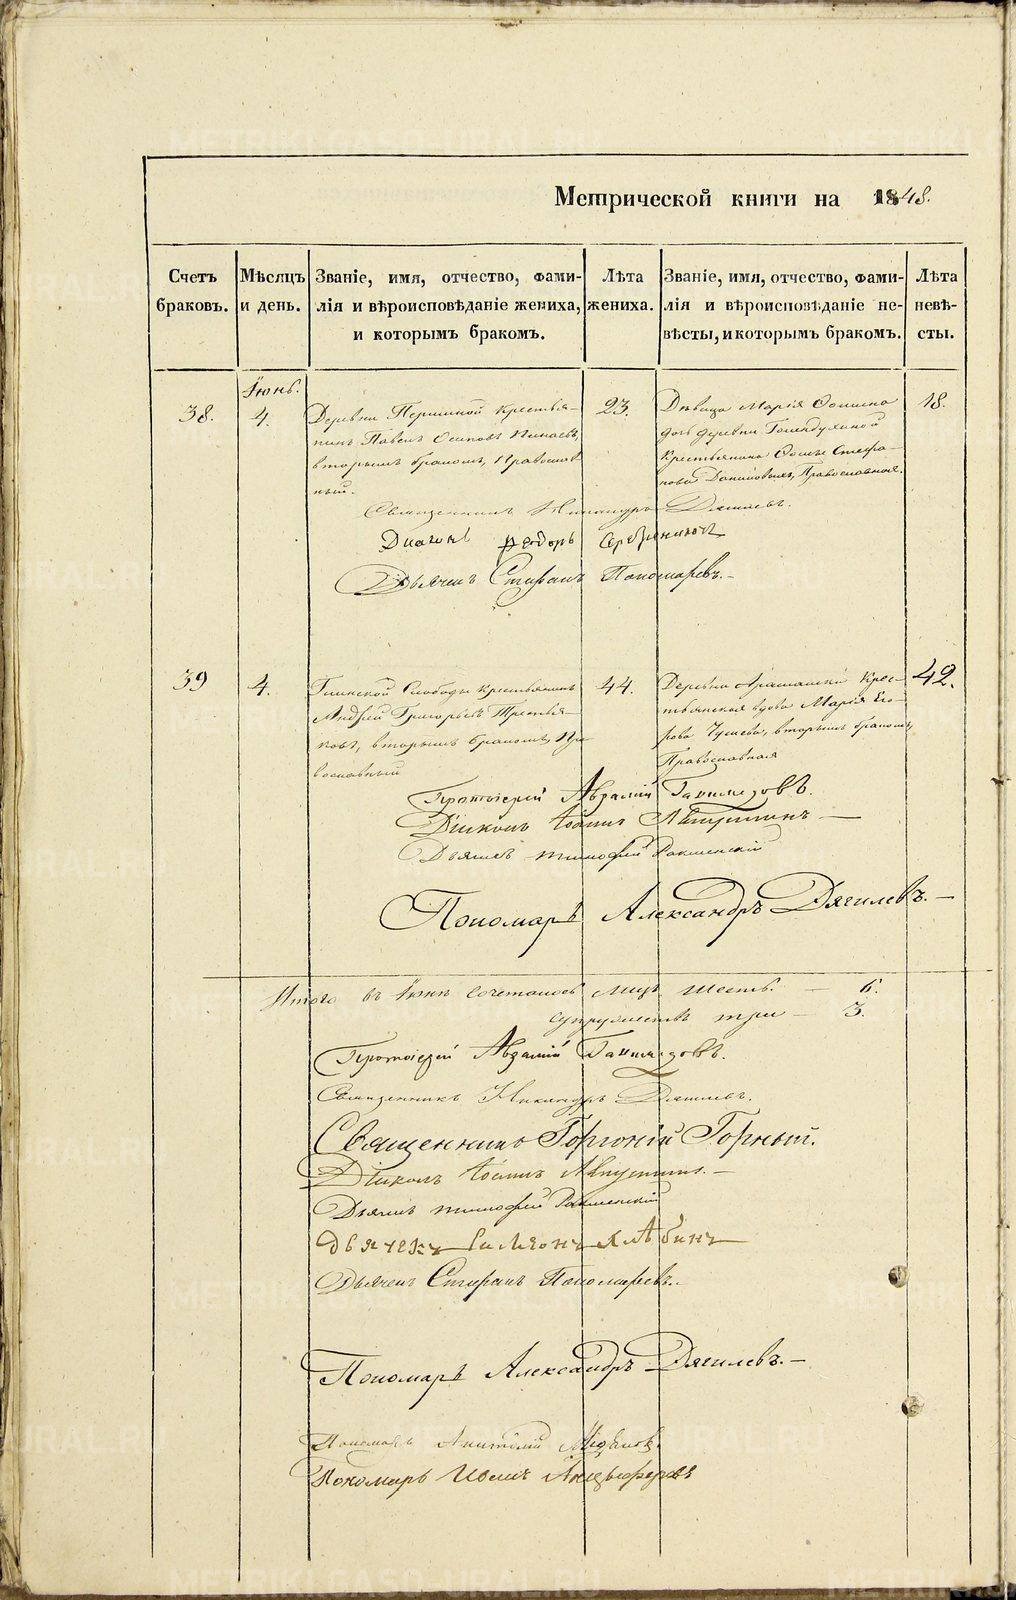 Метрической книги на 1848.
Счетъ браковъ.
Мѣсяцъ и день.
Званіе, имя, отчество, фами-
лія и вѣроисповѣданіе жениха,
и которымъ бракомъ.
Лѣта жениха.
Званіе, имя, отчество, фами-
лія и вѣроисповѣданіе не-
вѣсты, и которымъ бракомъ.
Лѣта невѣ-
сты.
Іюнь.
38.
4.
Деревни Першиной крестья-
нинъ Павелъ Осиповъ
вторымъ бракомъ, Православ
ный.
23.
Дѣвица Марія Осипова
дочь деревни Голендухиной
крестьянина Осипа Стефа-
нова Даниловыхъ, Православная.
18.
Священникъ Никандръ
Діаконъ Федоръ Серебренников
Дьячекъ Стефанъ Пономаревъ.
39
4.
Глинской Слободы крестьянинъ
Андрей Григорьевъ Третья-
ковъ, вторымъ бракомъ, Пра
вославный
44.
Деревни Арамашки Крес-
тьянская вдова Марія Его-
рова вторымъ бракомъ,
Православная
42.
Протоіерей Авраамій Ганимедовъ.
Діаконъ Іоаннъ
Дьячекъ Тимофей
Пономарь Александръ Дягилевъ.
Итого въ Іюнѣ сочеталось лицъ шесть. — 6.
супружествъ три — 3.
Протоіерей Авраамій Ганимедовъ.
Священникъ Никандръ
Священникъ Горгоній Горный.
Діаконъ Іоаннъ
Дьячекъ Тимофей
Дьячекъ Симеонъ Хлѣбинъ
Дьячекъ Стефанъ Пономаревъ.
Пономарь Александръ Дягилевъ.
Пономарь
Пономарь Иванъ Анцыферовъ
METRIKI.GASO-URAL.RU